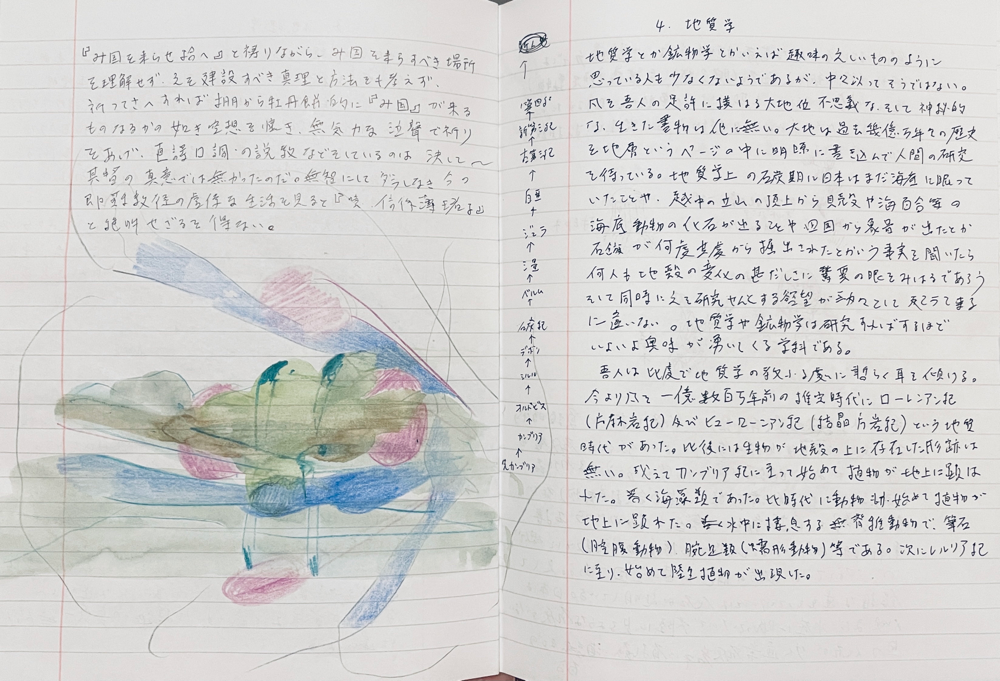 『み国を来らせ給へ』と祷りながら、み国を来らすべき場所
を理解せず、之を建設すべき真理と方法をも考えず、
祈ってさへすれば棚から牡丹餅的に『み国』が来る
ものなるかの如き空想を懐き、無気力な泣声で祈り
をあげ、直譯口調の説教などをしているのは決して
基督の真意では無かったのだ。無智にして
即
と絶叫せざるを得ない。
4. 地質学
地質学とか鉱物学とかいえば趣味の乏しいもののように
思っている人も少なくないようであるが、中々以ってそうではない。
凡そ吾人の足許に横はる大地位不思義な、そして神秘的
な、生きた書物は他に無い。大地は過去幾億万年の歴史
を地層というページの中に明瞭に書き込んで人間の研究
を待っている。地質学上の石炭期に日本はまだ海底に眠って
いたことや、越中の立山の頂上から貝殻や海百合等の
海底動物の化石が出ることや四国から象骨が出たとか
石油が何度其處から掘出されたとかいう事実を聞いたら
何人も地殻の変化の甚だしさに驚異の眼をみはるであろう
そして同時に之を研究せんとする慾望が油々として起こって来る
に違いない。地質学や鉱物学は研究すればするほど
いよいよ興味が湧いてくる学科である。
吾人は此處で地質学の教ふる處に暫らく耳を傾ける。
今より凡そ一億数百万年前の推定時代にローレンアン紀
(片麻岩紀)及びヒューローニアン紀(結晶片岩紀)という地質
時代があった。此後には生物が地殻の上に存在した形跡は
無い。次えてカンブリア紀に至って始めて植物が地上に顕は
れた。蓋く海藻類であった。此時代に動物も始めて植物が
地上に顕れた。蓋く水中に棲息する無脊椎動物で、筆石
(腔腹動物)腕足類(蠕形動物)等である。次にシルリア紀
に至り、始めて陸生植物が出現した。
第四紀
↑
新第三紀
↑
古第三紀
↑
白亜
↑
ジュラ
↑
三畳
↑
ペルム
石炭紀
↑
デボン
↑
シルル
↑
オルドビス
↑
カンブリア
↑
先カンブリア